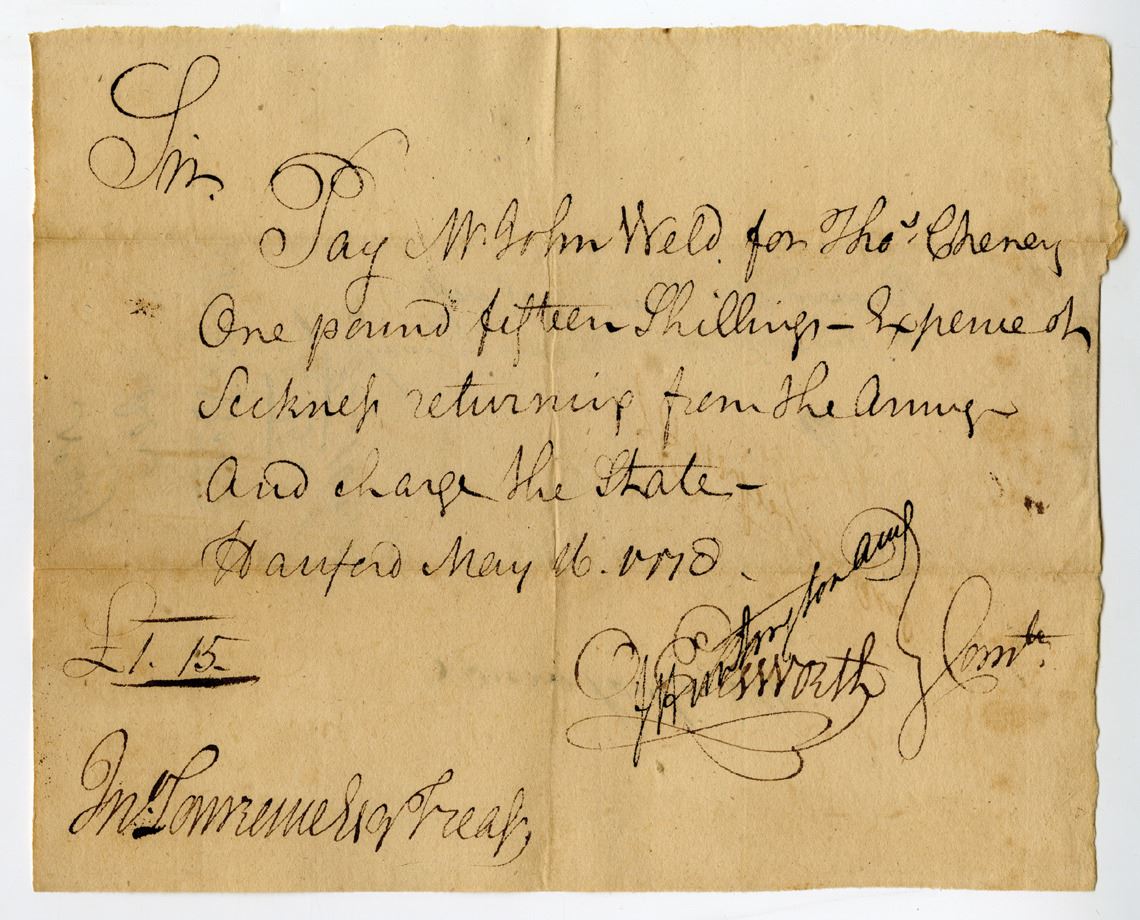 Sir.
Pay Mr. John Weld. for Thos Cheney
One pound fifteen Shillings – Expence of
Seckness returning from the Army
And charge the State –
Hartford May 16. 1778.
£1. 15
Huntington Junr
O Ellsworth
Comte
Jno. Lawrence Esqr Treasr